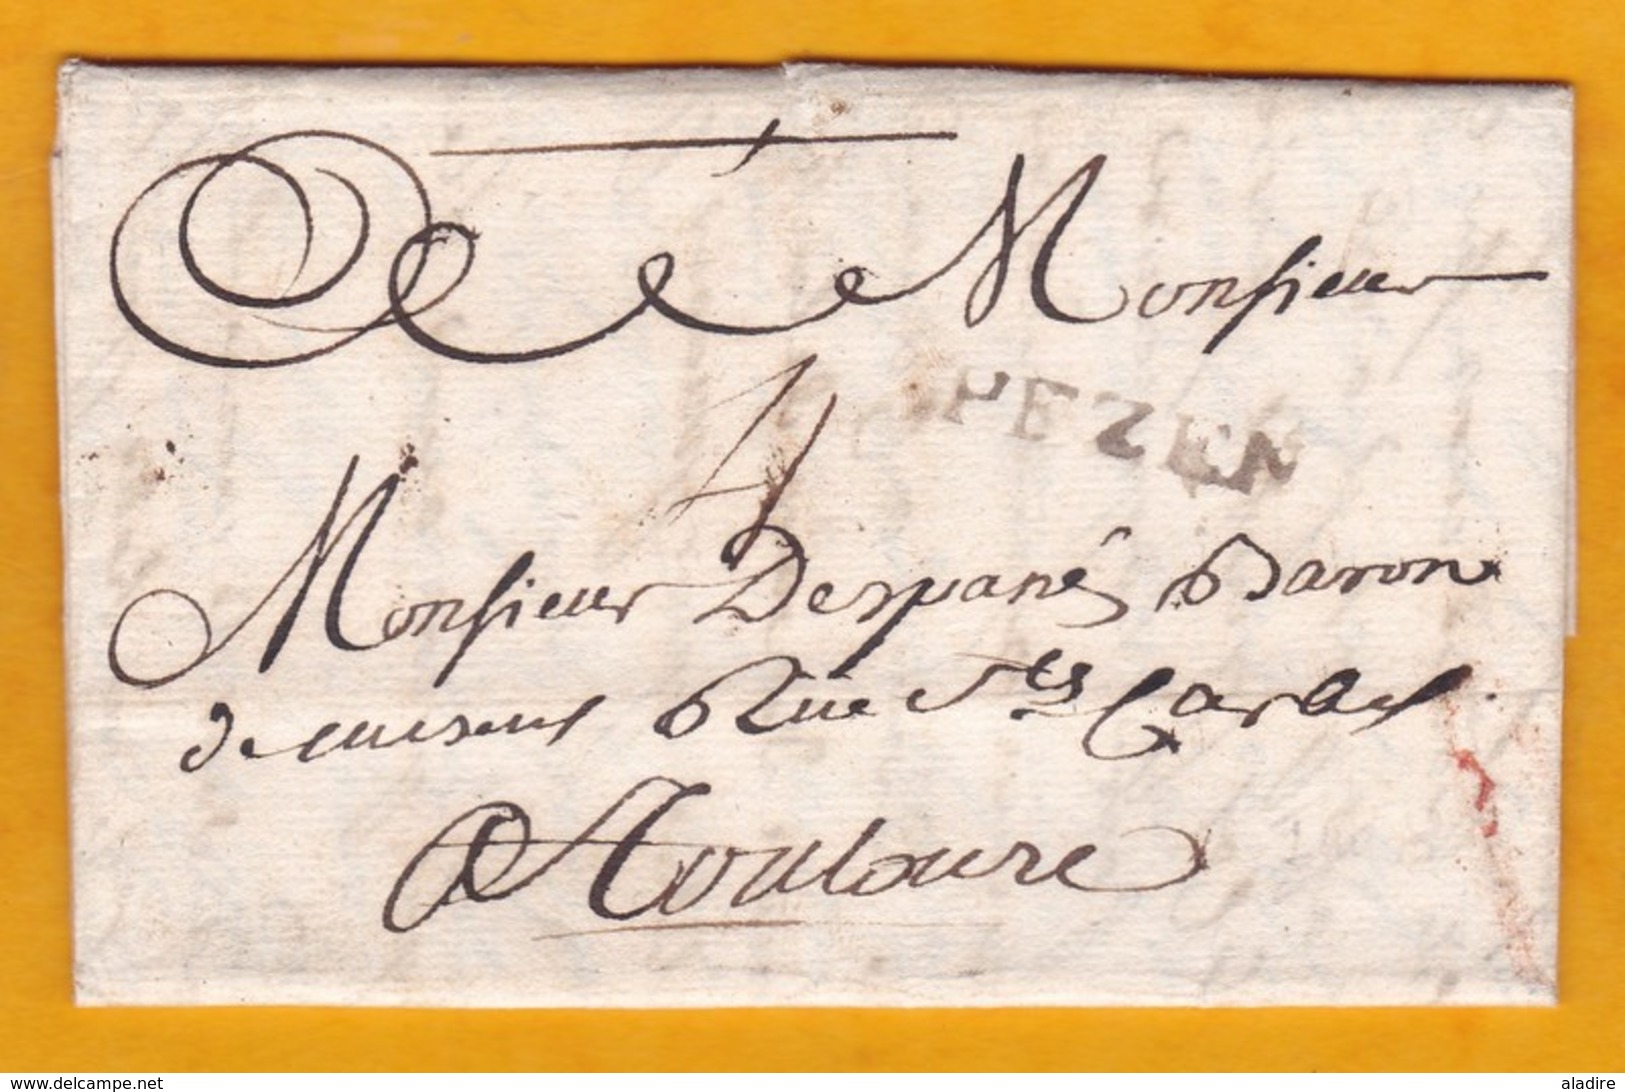 A Monsieur
PEZEN
4
Monsieur Despanés Baron
de Rüe Stes Carbes
A Toulouse
www.delcampe.net
aladire